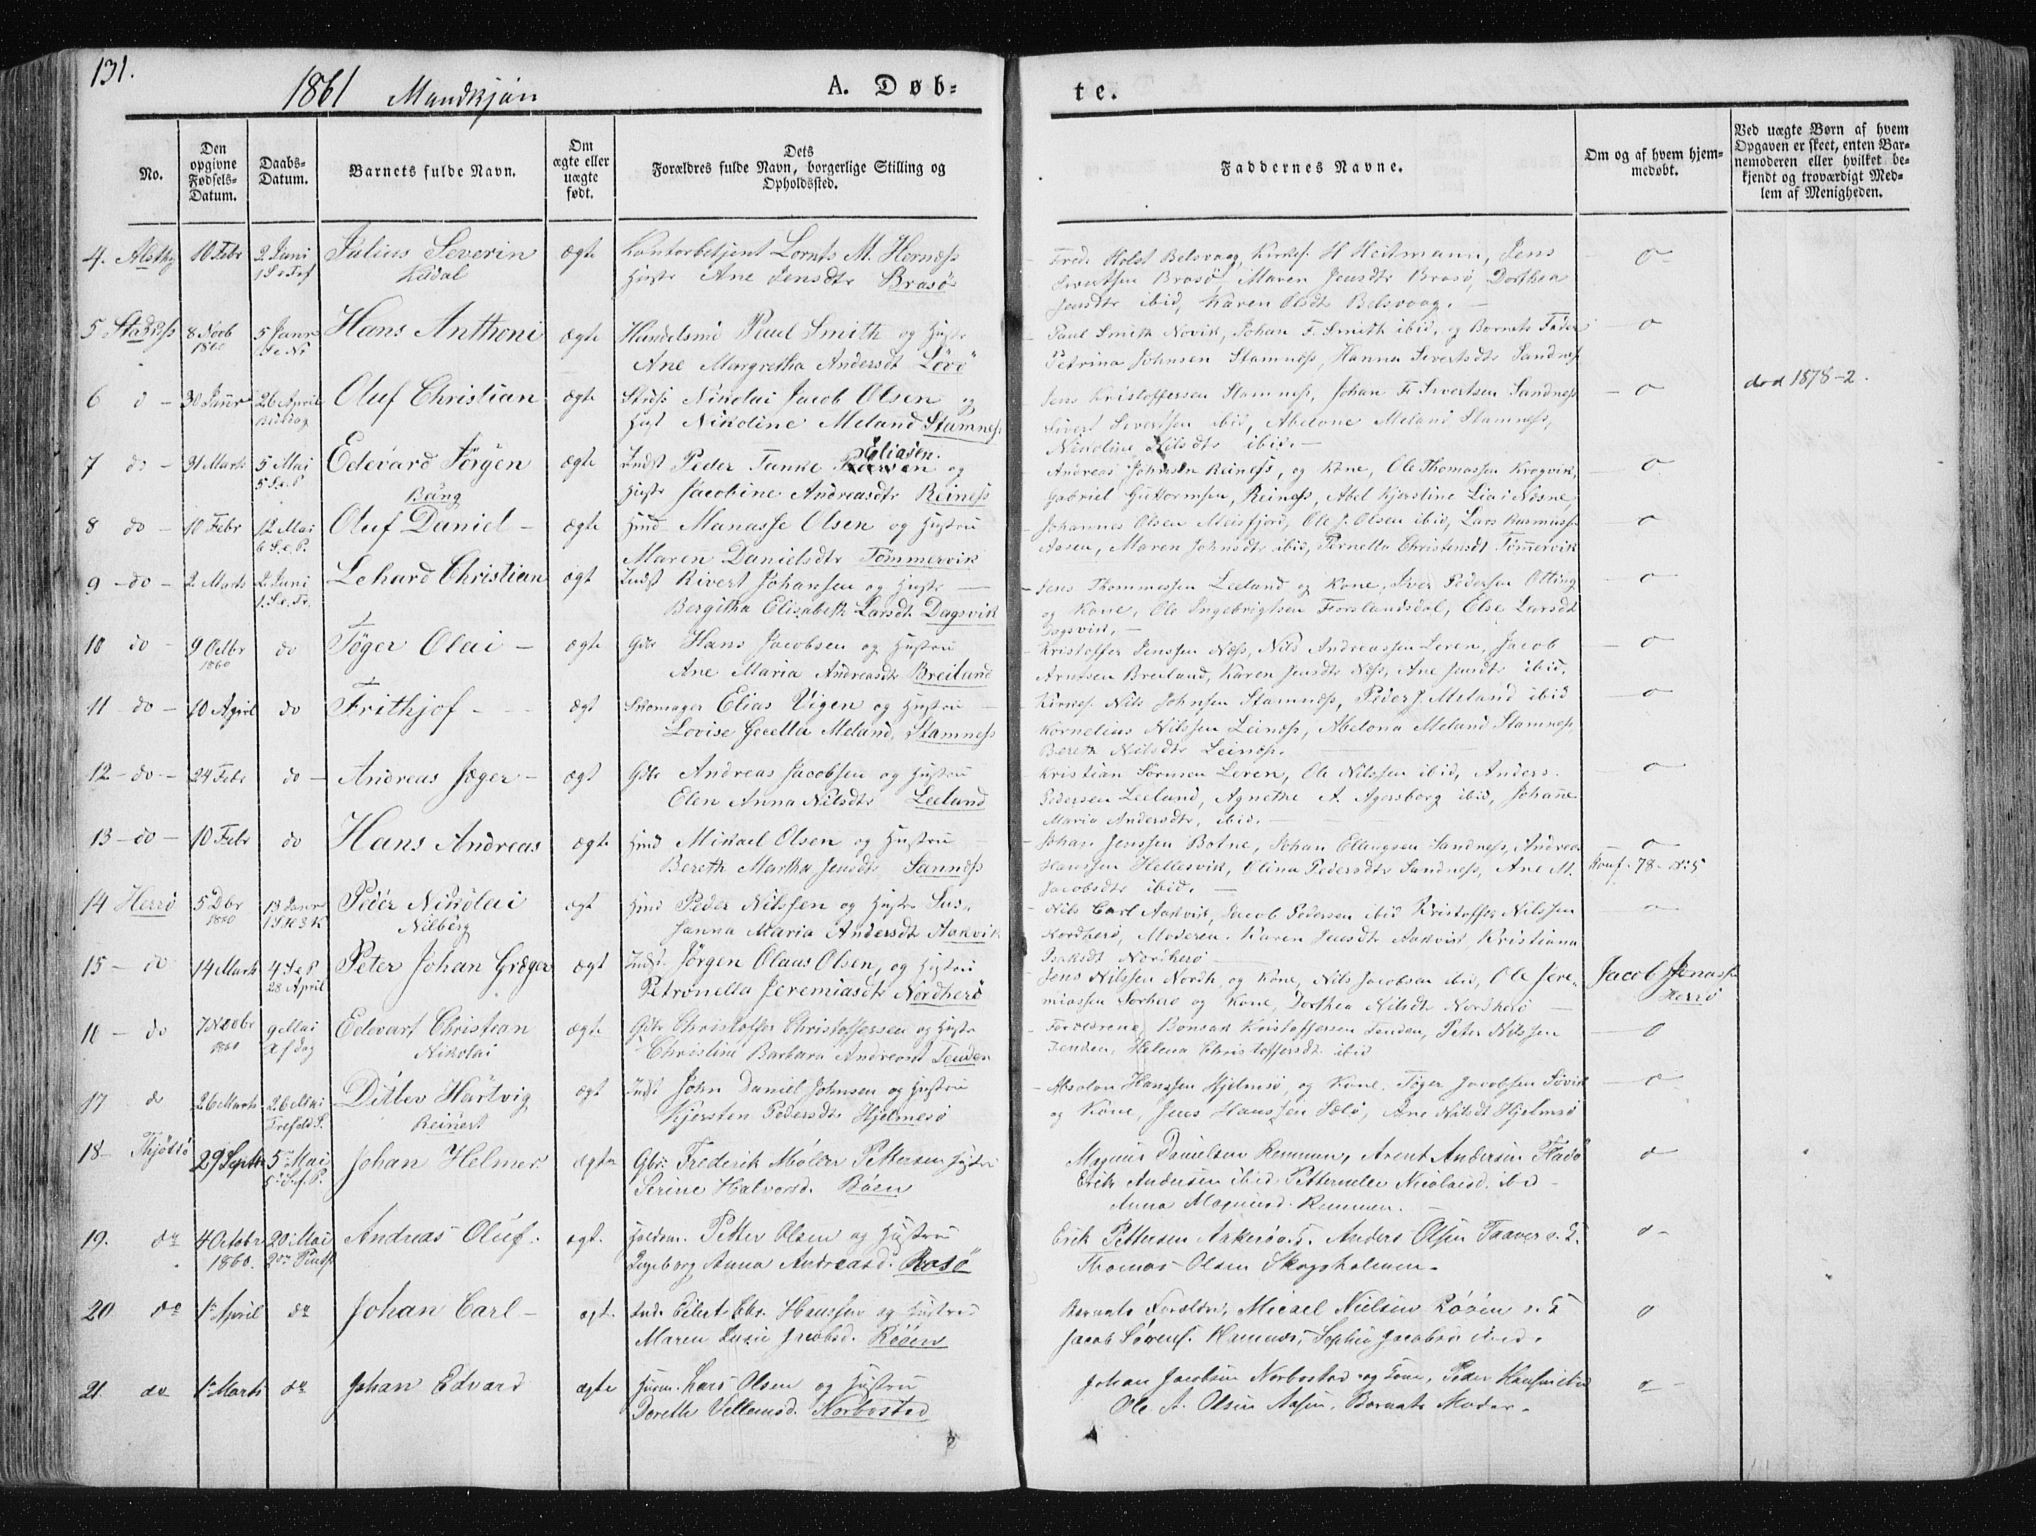 131.
1861 Mandkjøn
A. Døb-
te.
No.
Den opgivne Fødsels-Datum.
Daabs-Datum.
Barnets fulde Navn.
Om ægte eller uægte født.
Dets Forældres fulde Navn, borgerlige Stilling og Opholdssted.
Faddernes Navne.
Om og af hvem hjem-medøbt.
Ved uægte Børn af hvem Opgaven er skeet, enten Bar-nemoderen eller hvilket be-kjendt og troværdigt Med-lem af Menigheden.
4. 10 Febr 2 Juni Julius Severin ægte Kontorbetjent Lornts M. Hernæss
Kadal Hustr Ane Jensdtr Brasö
Fred. Holst Belsvaag, Kirkes. H Heitmann, Jens
Sivertsen Brasö, Maren Jensdtr Brasö, Dorthea
Jensdtr ibid, Karen Olsdt Belsvaag. –
5 8 Novb 1860 5 Janr Hans Anthoni ægte Handelsmd Paul Smith og Hustr
Ane Margretha Andersdt Lövö
Paul Smith Novik, Johan F. Smith ibid, og Barnets Fader
Petrina Johnsen Stamnæss, Hanna Sivertsdtr Sandnes
6 30 Janr 26 April Oluf Christian ægte Nikolai Jacob Olsen og
Nikoline Meland Stamnes
Jens Kristoffersen Stamnæss, Johan F. Sivertsen Sandnæss
Sivert Sivertsen ibid, Abelone Meland Stamnæss,
Nicoline Nilsdtr ibid. –
død 1878-2.
7 do 31 Marts 5 Mai Edevard Jörgen ægte Indst Peder Tanke Eliasen og
Bang Hustr Jacobine Andreasdtr Reinæss
Andreas Johnsen Reinæss, og Kone, Ole Thomassen Krogvik,
Gabriel Guttormsen, Reinæss, Abel Kjerstine Lia i Næsne,
8 do 10 Febr 12 Mai Oluf Daniel – ægte Hmd Manasse Olsen og Hustru
6 S. e. P. Maren Danielsdtr Tömmervik
Johannes Olsen Meisfjord, Ole J. Olsen ibid, Lars Rasmuss
Aasen, Maren Johnsdtr ibid, Pernella Christensdt Tömmervik
9 do 2 Marts 2 Juni Lehard Christian ægt Indst Sivert Johansen og Hustr
Bergitha Elisabeth Larsdt Dagsvik
Jens Thommessen Leeland og Kone, Iver Pedersen Otting
og Kone, Ole Ingebrigtsen Forslandsdal, Else Larsdt
Dagsvik. –
10 do 9 Octbr 1860 do Töger Olai – ægte Gbr Hans Jacobsen og Hustru
Ane Maria Andreasdtr Breiland
Kristoffer Jenssen Næss, Nils Andreassen Leren, Jacob
Arntsen Breiland, Karen Jensdtr Næss, Ane Jensdtr ibid.
11 do 10 April do Frithjof – ægt Skomager Elias Vigen og Hustru
Lovise Gecella Meland, Stamness
Kirkes. Nils Johnsen Stamnæss, Peder J. Meland ibid
Kornelius Nilssen Leinæss, Abelona Meland Stamnæss,
Bereth Nilsdtr Leinæss.
12 do 24 Febr do Andreas Jæger – ægt Gbr Andreas Jacobsen og Hustru
Elen Anna Nilsdtr Leeland
Kristian Leren, Ole Nilssen ibid, Anders
Pedersen Leeland, Agnethe A. Agersborg ibid, Johane
Maria Andersdtr, ibid. –
13 do 10 Febr do Hans Andreas ægte Hmd Mikael Olsen og Hustru
Bereth Martha Jensdtr Sannæss
Johan Jenssen Botne, Johan Ellingsen Sandness, Andreas
Hanssen Hellesvik, Olina Pedersdtr Sandness, Ane M.
Jacobsdtr ibid. –
Konf. 78 № 5
14 Herrö 5 Dbr 1860 13 Janr Peder Nikolai ægt Hmd Peder Nilssen og Hustr Sus
Nilberg janna Maria Andersdt Aakvik
Nils Carl Aakvik, Jacob Pedersen ibid Kristoffer Nilssen
Nordherö, Moderen, Karen Jensdtr Aakvik Kristiana
Isaksdt Nordherö –
15 do 14 Marts 4 S e P 28 April Peter Johan Græger ægt Indst. Jörgen Olaus Olsen, og Hustru
Petronella Jeremiasdtr Nordherö
Jens Nilssen Nordh, og Kone, Nils Jacobsen ibid, Ole Jere-
miassen Sorherö og Kone, Dorthea Nilsdt Nordherö –
Jacob Jonass
Herrö
16 do 1860 9 Mai Edevart Christian ægte Gbr Christoffer Christoffersen og Hustr
Nikolai Christine Barbara Andreasd Tenden
Forældrene, Bonsak Kristoffersen Tenden, Peter Nilssen
Tenden, Helena Christoffersdt ibid
17 do 26 Marts 26 Mai Ditlev Hartvig ægt Indst John Daniel Johnsen og Hustru
Trefold. S. Reinert Kjersten Pedersdtr Hjelmesö
Absalon Hanssen Hjelmsö, og Kone, Töger Jacobsen Sövik
og Kone, Jens Hanssen Sælö, Ane Nilsdt Hjelmsö
18 Thjöttö 29 Septbr 5 Mai Johan Helmer ægte Gbr. Frederik Möller Pettersen Hustru
Serine Halvorsd. Böen
Magnus Danielsen Remmen, Arent Andersen Fladö
Erik Andersen ibid Petternelle Nicolaisd. ibid –
Anna Magnusd. Remmen. –
19. do 4 Octobr 1860. 20 Mai Andreas Oluf. ægt. Petter Olsen og Hustru
Ingeborg Anna Andreasd. Rosö
Erik Pettersen Aakerö, Anders Olsen Taaver
Thomas Olsen Skogsholmen.
20 do 1 April do Johan Carl – ægt. Eilert Chr. Hanssen og Hustru
Maren Jacobsd. Rööen
Barnets Forældre, Micael Nielsen Rööen
Jacob Sörens. Hamnes, Sophie Jacobsd ibid.
21 do 1 Marts do Johan Edvard ægte Husm. Lars Olsen og Hustru
Dorethe Villumsd. Norbostad
Johan Jacobsen Norbostad og Kone, Peder Hansen ibid
Ole A. Olsen Aasen, Barnets Moder.